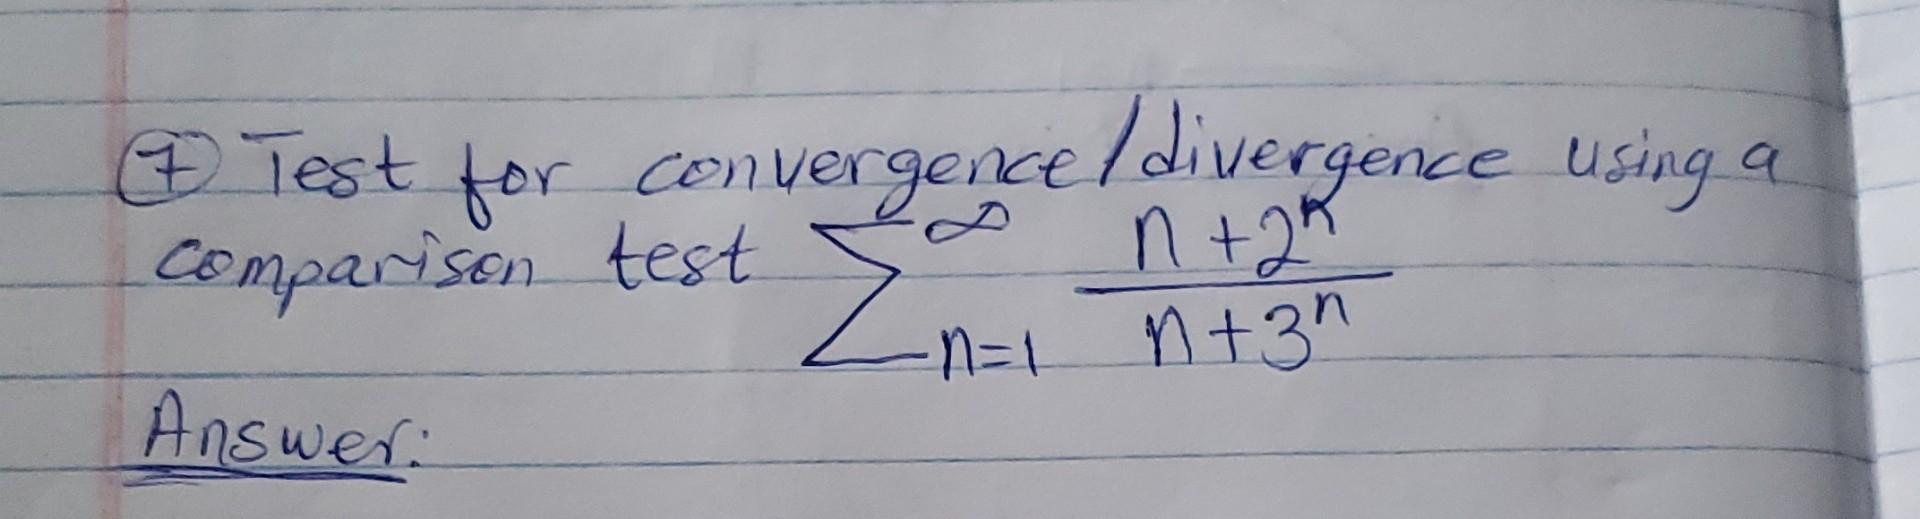 ⑦ Test for convergence/divergence using a
comparison test ∑_{n=1}^{∞} \frac{n+2^n}{n+3^n}
Answer: